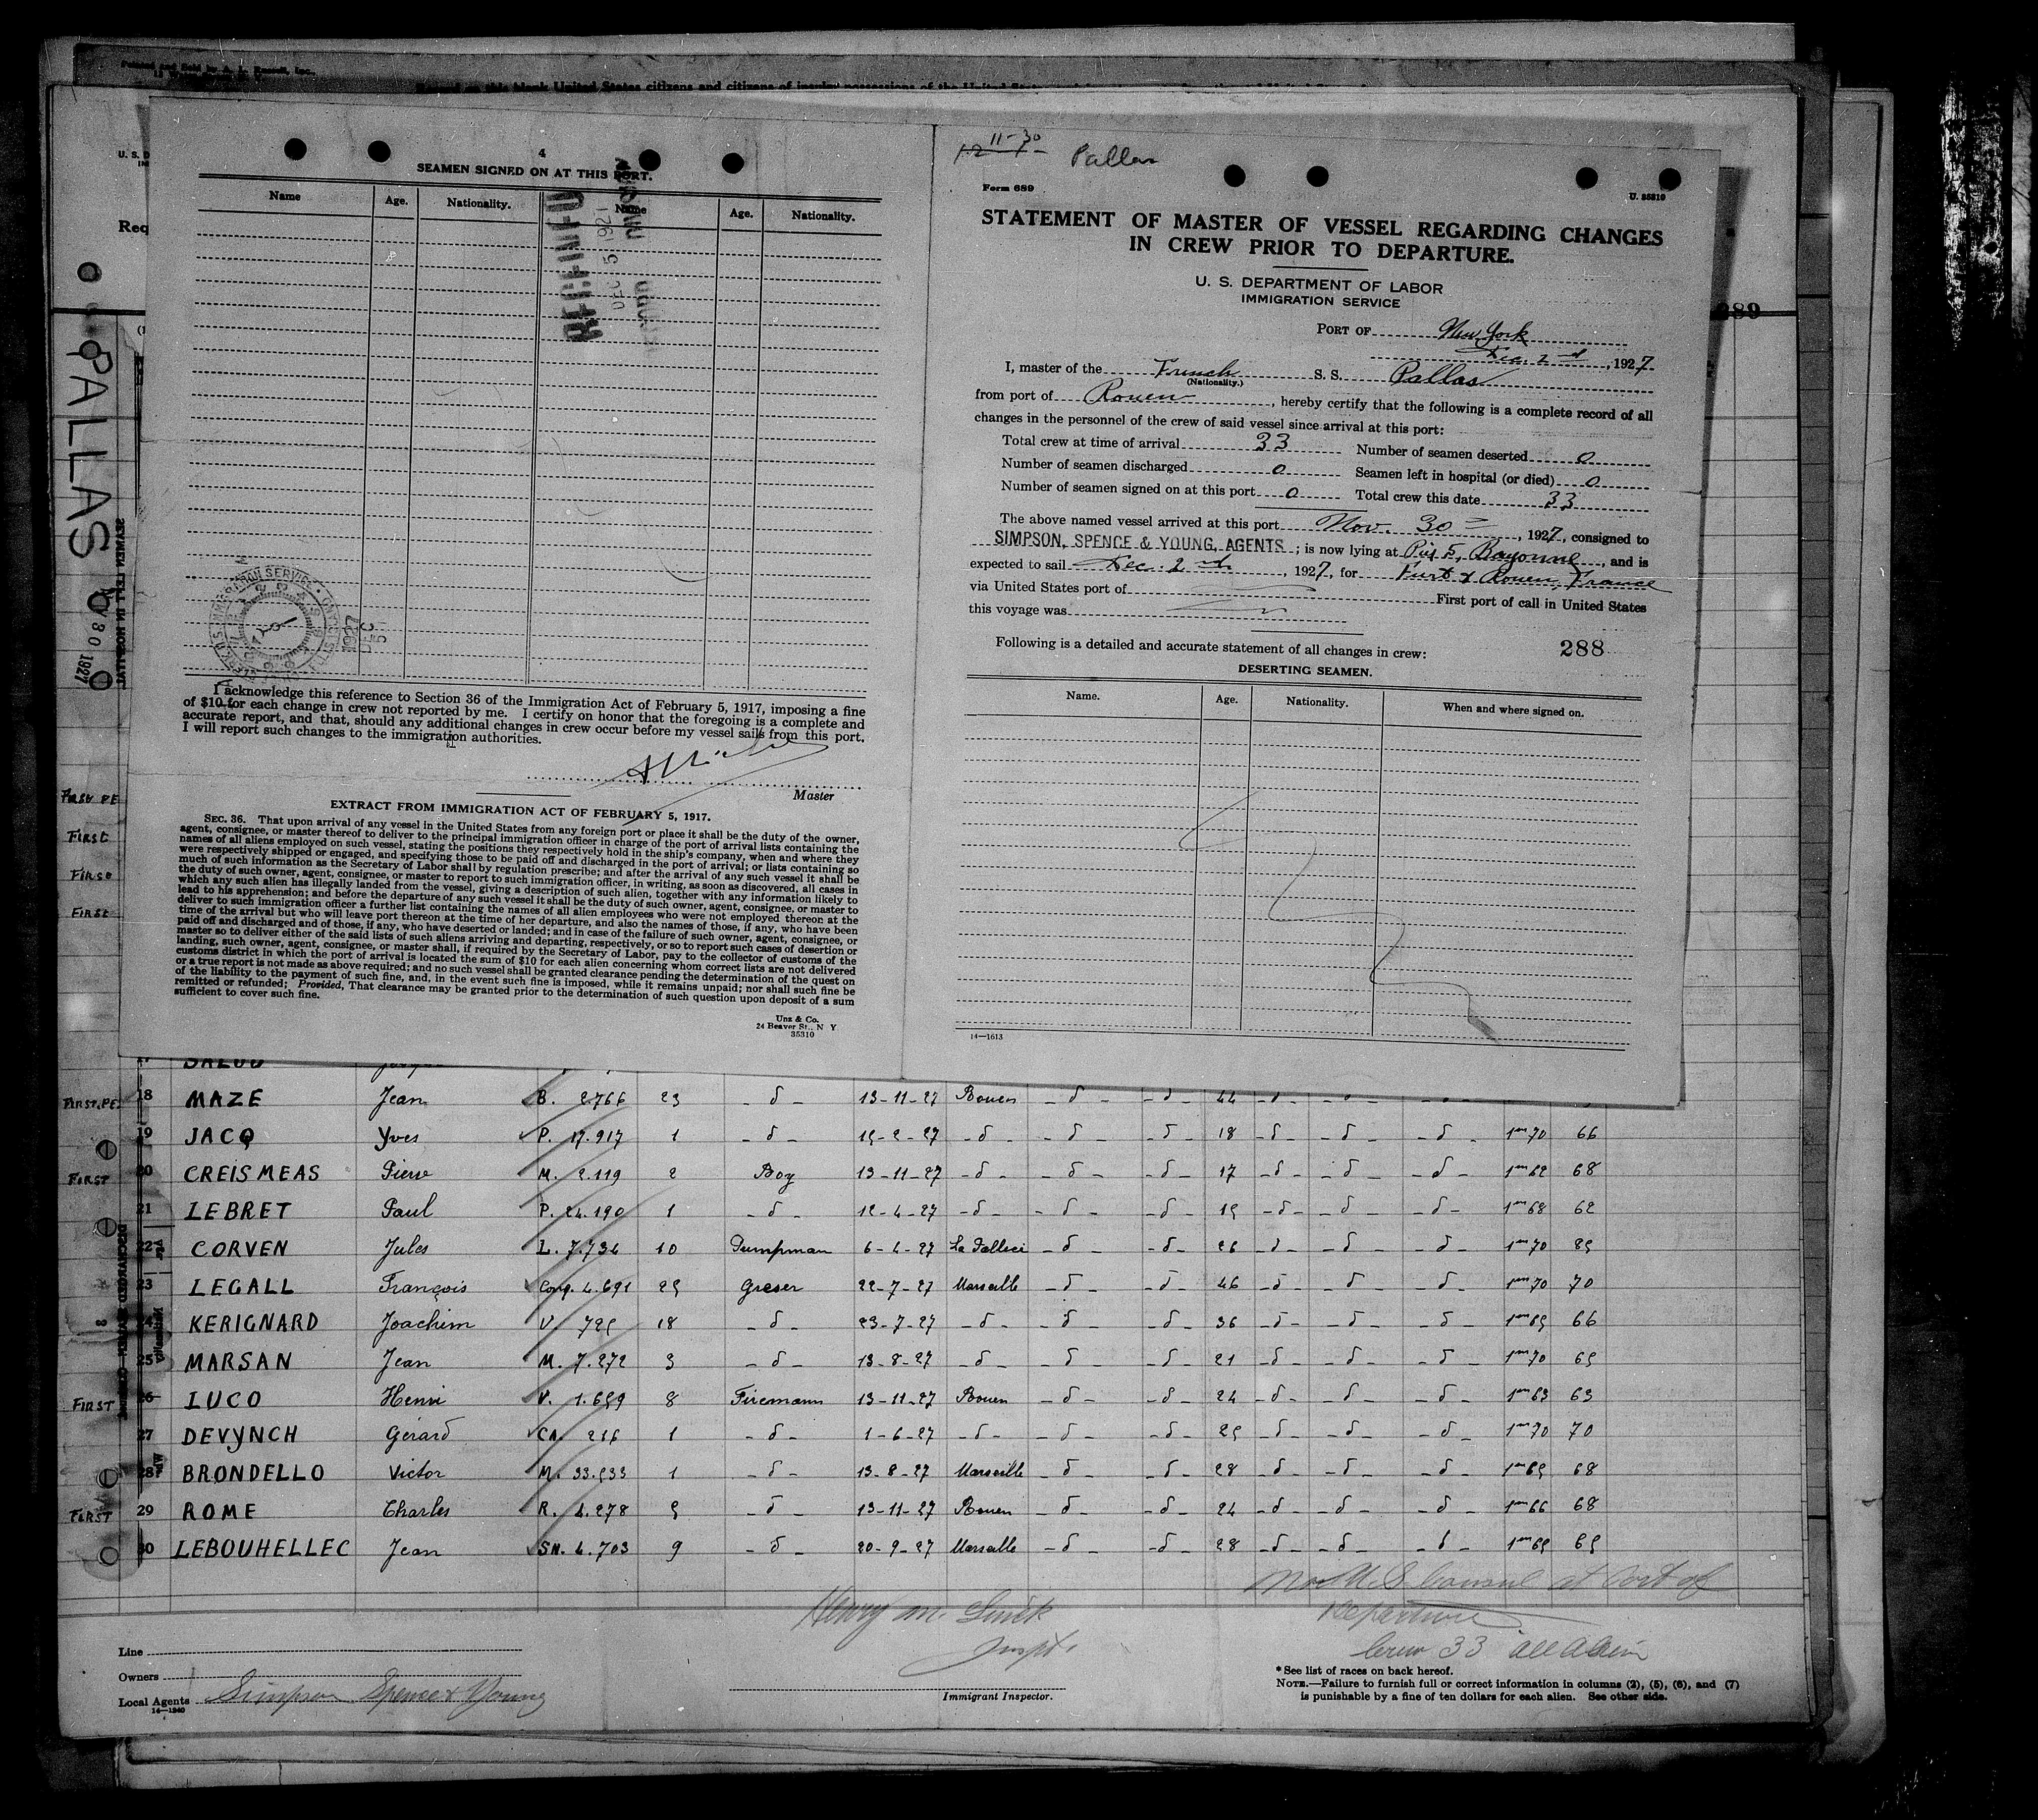 Printed and Sold by A. L. Russell, Inc.,
U. S. D
Req
289
PALLAS
NOV 30 1927
SEAMEN LEFT IN HOSPITAL
4
SEAMEN SIGNED ON AT THIS PORT.
Name Age. Nationality. Name Age. Nationality.
DEC 5 1927
I acknowledge this reference to Section 36 of the Immigration Act of February 5, 1917, imposing a fine
of $10 for each change in crew not reported by me. I certify on honor that the foregoing is a complete and
accurate report, and that, should any additional changes in crew occur before my vessel sails from this port.
I will report such changes to the immigration authorities.
Master
EXTRACT FROM IMMIGRATION ACT OF FEBRUARY 5, 1917.
SEC. 36. That upon arrival of any vessel in the United States from any foreign port or place it shall be the duty of the owner,
agent, consignee, or master thereof to deliver to the principal immigration officer in charge of the port of arrival lists containing the
names of all aliens employed on such vessel, stating the positions they respectively hold in the ship's company, when and where they
were respectively shipped or engaged, and specifying those to be paid off and discharged in the port of arrival; or lists containing so
much of such information as the Secretary of Labor shall by regulation prescribe; and after the arrival of any such vessel it shall be
the duty of such owner, agent, consignee, or master to report to such immigration officer, in writing, as soon as discovered, all cases in
which any such alien has illegally landed from the vessel, giving a description of such alien, together with any information likely to
lead to his apprehension; and before the departure of any such vessel it shall be the duty of such owner, agent, consignee, or master to
deliver to such immigration officer a further list containing the names of all alien employees who were not employed thereon at the
time of the arrival but who will leave port thereon at the time of her departure, and also the names of those, if any, who have been
paid off and discharged and of those, if any, who have deserted or landed; and in case of the failure of such owner, agent, consignee, or
master so to deliver either of the said lists of such aliens arriving and departing, respectively, or so to report such cases of desertion or
landing, such owner, agent, consignee, or master shall, if required by the Secretary of Labor, pay to the collector of customs of the
customs district in which the port of arrival is located the sum of $10 for each alien concerning whom correct lists are not delivered
or a true report is not made as above required; and no such vessel shall be granted clearance pending the determination of the quest on
of the liability to the payment of such fine, and, in the event such fine is imposed, while it remains unpaid; nor shall such fine be
remitted or refunded; Provided, That clearance may be granted prior to the determination of such question upon deposit of a sum
sufficient to cover such fine.
Unz & Co.
24 Beaver St., N Y
35310
11-30
Pallas
Form 689
U. 35310
STATEMENT OF MASTER OF VESSEL REGARDING CHANGES
IN CREW PRIOR TO DEPARTURE.
U. S. DEPARTMENT OF LABOR
IMMIGRATION SERVICE
PORT OF New York
Dec. 2nd, 1927.
I, master of the French S. S. Pallas
(Nationality.)
from port of Rouen, hereby certify that the following is a complete record of all
changes in the personnel of the crew of said vessel since arrival at this port:
Total crew at time of arrival 33 Number of seamen deserted 0
Number of seamen discharged 0 Seamen left in hospital (or died) 0
Number of seamen signed on at this port 0 Total crew this date 33
The above named vessel arrived at this port Nov. 30, 1927, consigned to
SIMPSON, SPENCE & YOUNG, AGENTS; is now lying at Pier 5, Bayonne, and is
expected to sail Dec. 2nd, 1927, for Furt & Rouen, France
via United States port of First port of call in United States
this voyage was
Following is a detailed and accurate statement of all changes in crew: 288
DESERTING SEAMEN.
Name. Age. Nationality. When and where signed on.
14—1613
FIRST
FIRST
FIRST
18 MAZE Jean B. 2766 23 -d- 13-11-27 Rouen -d- -d- 44 -d-
19 JACQ Yves P. 17.917 1 -d- 15-2-27 -d- -d- -d- 18 -d- -d- -d- 1m70 66
FIRST 20 CREISMEAS Pierre M. 2.119 2 Boy 13-11-27 -d- -d- -d- 17 -d- -d- -d- 1m62 68
21 LEBRET Paul P. 24.190 1 -d- 12-4-27 -d- -d- -d- 15 -d- -d- -d- 1m68 62
22 CORVEN Jules L. 7.734 10 Pumpman 6-4-27 La Pallice -d- -d- 26 -d- -d- -d- 1m70 85
23 LEGALL François Conq. 4.691 25 Greser 22-7-27 Marseille -d- -d- 46 -d- -d- -d- 1m70 70
24 KERIGNARD Joachim V. 725 18 -d- 23-7-27 -d- -d- -d- 36 -d- -d- -d- 1m65 66
25 MARSAN Jean M. 7.272 3 -d- 13-8-27 -d- -d- -d- 21 -d- -d- -d- 1m70 65
FIRST 26 LUCO Henri V. 1.659 8 Firemann 13-11-27 Rouen -d- -d- 24 -d- -d- -d- 1m63 63
27 DEVYNCH Gérard CA. 216 1 -d- 1-6-27 -d- -d- -d- 25 -d- -d- -d- 1m70 70
28 BRONDELLO Victor M. 33.533 1 -d- 13-8-27 Marseille -d- -d- 28 -d- -d- -d- 1m65 68
FIRST 29 ROME Charles R. 4.278 5 -d- 13-11-27 Rouen -d- -d- 24 -d- -d- -d- 1m66 68
30 LEBOUHELLEC Jean SN. 4.703 9 -d- 20-9-27 Marseille -d- -d- 28 -d- -d- -d- 1m65 65
No U.S. Consul at Port of
Departure
Crew 33 all alien
Henry M.
Inspt.
Line
Owners
Local Agents Simpson Spence & Young
14—1240
Immigrant Inspector.
* See list of races on back hereof.
NOTE.—Failure to furnish full or correct information in columns (2), (5), (6), and (7)
is punishable by a fine of ten dollars for each alien. See other side.